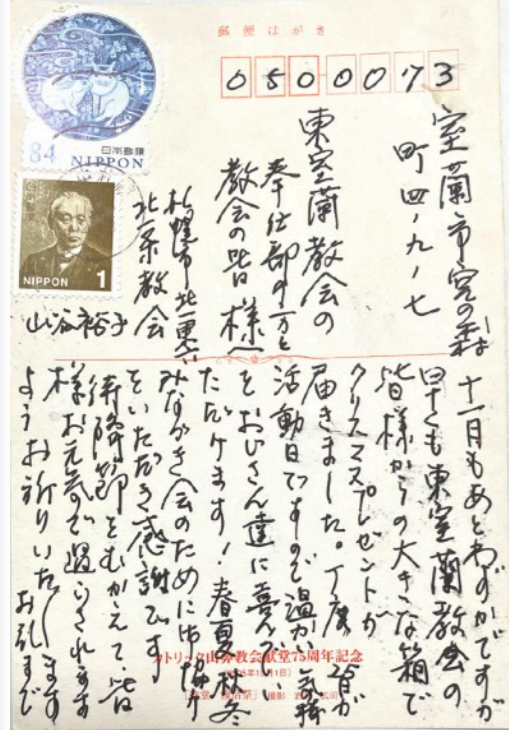 郵便はがき
0500073
84
日本郵便
NIPPON
NIPPON 1
室蘭市宮の森
町四ノ九ノ七
東室蘭教会の
奉仕部の方と
教会の皆様へ
札幌市北一東六
北一条教会
山谷裕子
十一月もあとわずかですが
早くも東室蘭教会の
皆様からの大きな箱で
クリスマスプレゼントが
届きました。丁度 が
活動日ですので温かい気持
をおじさん達に喜んでい
ただけます!春夏秋冬
みなづき会のために御協力
をいただき感謝です
待降節をむかえて、皆
様お元気で過ごされます
ようお祈りいたします
お礼まで
カトリック山鼻教会献堂75周年記念
撮影